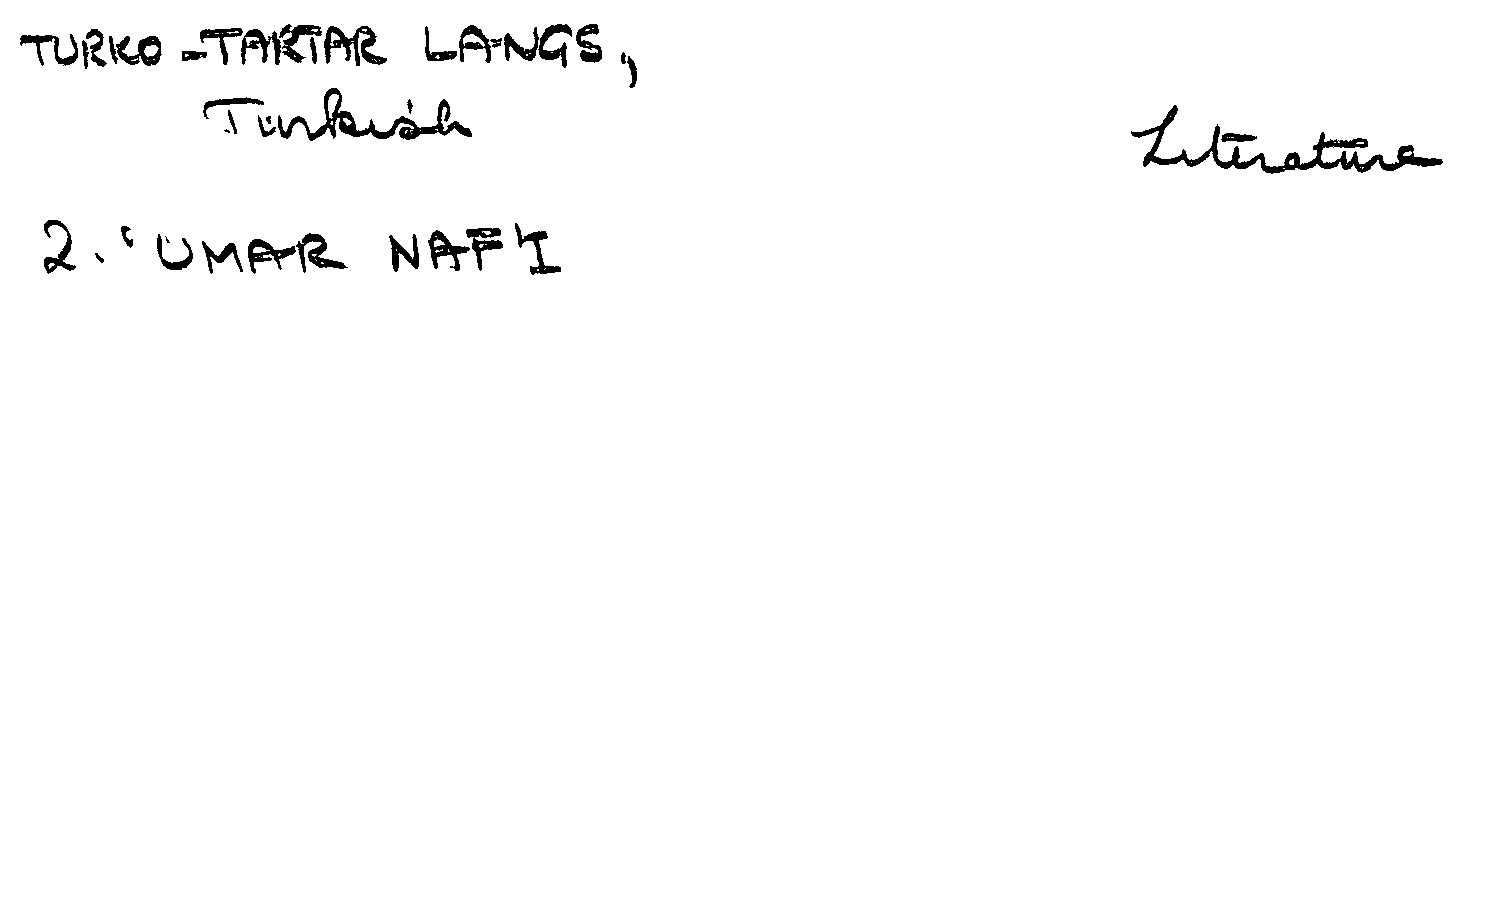 TURKO-TARTAR LANGS,
Turkish
Literature
2. 'UMAR NAF'I